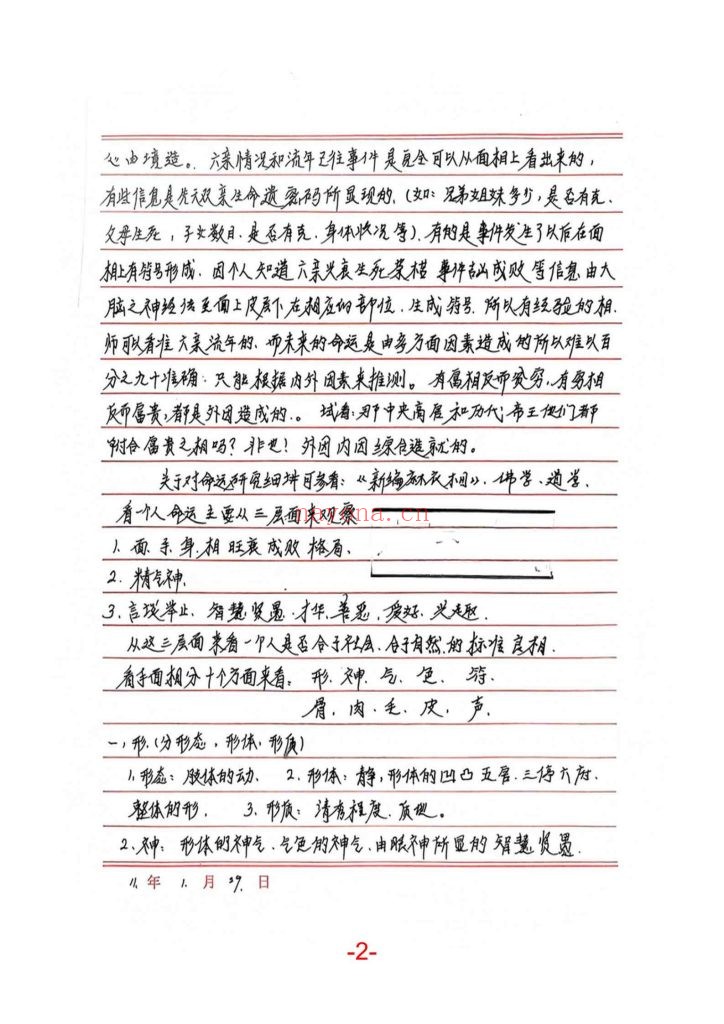 心由境造。六亲情况和流年已往事件是完全可以从面相上看出来的,
有些信息是先天双亲生命遗密码所显现的,(如:兄弟姐妹多少,是否有克.
父母生死,子女数目.是否有克.身体状况等).有的是事件发生了以后在面
相上有符号形成.因个人知道六亲兴衰生死荣枯事件吉凶成败等信息由大
脑之神经传至面上皮层下在相应的部位.生成符号.所以有经验的相.
师可以看准六亲流年的.而未来的命运是由多方面因素造成的所以难以百
分之九十准确.只能根据内外因素来推测。有富相反而贫穷,有穷相
反而富贵,都是外因造成的.。试看:那中央高层和历代帝王他们都
附合富贵之相吗?非也!外因内因综合造就的。
关于对命运研究细详可参看:《新编麻衣相》.佛学.道学.
看一个人命运主要从三层面来观察
nayona.cn
1.面.手.身.相旺衰成败格局.
2.精气神.
3.言谈举止.智慧贤愚.才华.善恶,爱好.兴趣.
从这三层面来看一个人是否合于社会.合于自然.的标准良相.
看手面相分十个方面来看:形.神.气.色.符.
骨.肉.毛.皮,声.
一,形.(分形态,形体.形质)
1.形态:肢体的动. 2.形体:静,形体的凹凸五官.三停六府.
整体的形. 3.形质:清秀程度.质地。
2.神:形体的神气.气色的神气.由眼神所显的智慧贤愚.
11.年 1.月 29.日
-2-